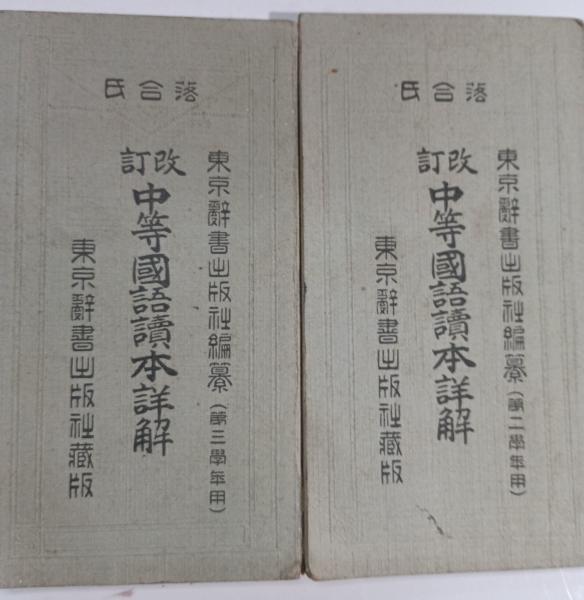 落合氏
東京辭書出版社編纂(第三學年用)
改訂
中等國語讀本詳解
東京辭書出版社藏版
落合氏
東京辭書出版社編纂(第二學年用)
改訂
中等國語讀本詳解
東京辭書出版社藏版